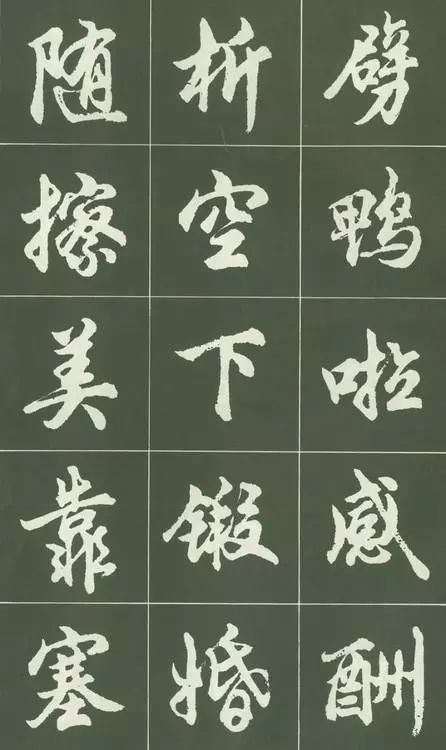 劈鸭啦感酬
析空下锻婚
随擦美靠塞